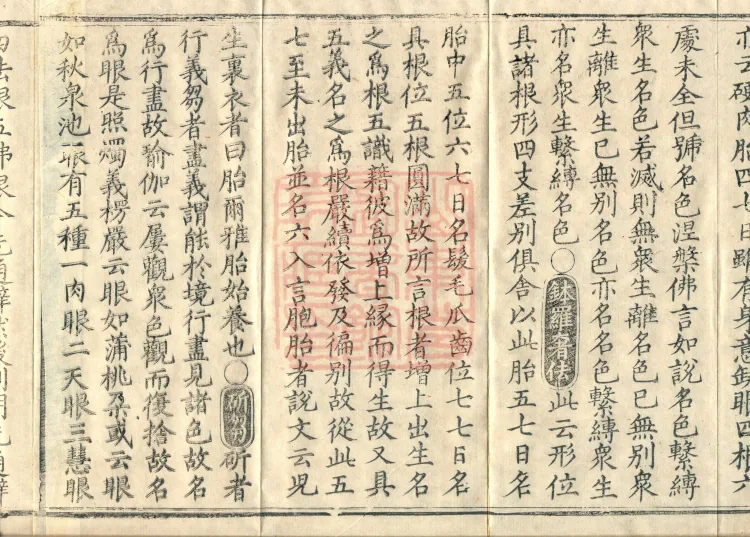 亦云硬肉胎四七日雖有身意缺眼四根六
處未全但號名色涅槃佛言如說名色繫縛
衆生名色若滅則無衆生離名色已無別衆
生離衆生已無別名色亦名名色繫縛衆生
亦名衆生繫縛名色〇鉢羅奢佉此云形位
具諸根形四支差別俱舍以此胎五七日名
胎中五位六七日名髮毛爪齒位七七日名
具根位五根圓滿故所言根者增上出生名
之為根五識藉彼為增上緣而得生故又具
五義名之為根嚴續依發及徧別故從此五
七至未出胎並名六入言胞胎者說文云皃
生裏衣者曰胎爾雅胎始養也〇斫芻斫者
行義芻者盡義謂能於境行盡見諸色故名
為行盡故瑜伽云屢觀衆色觀而復捨故名
為眼是照燭義楞嚴云眼如蒲桃朶或云眼
如秋泉池眼有五種一肉眼二天眼三慧眼